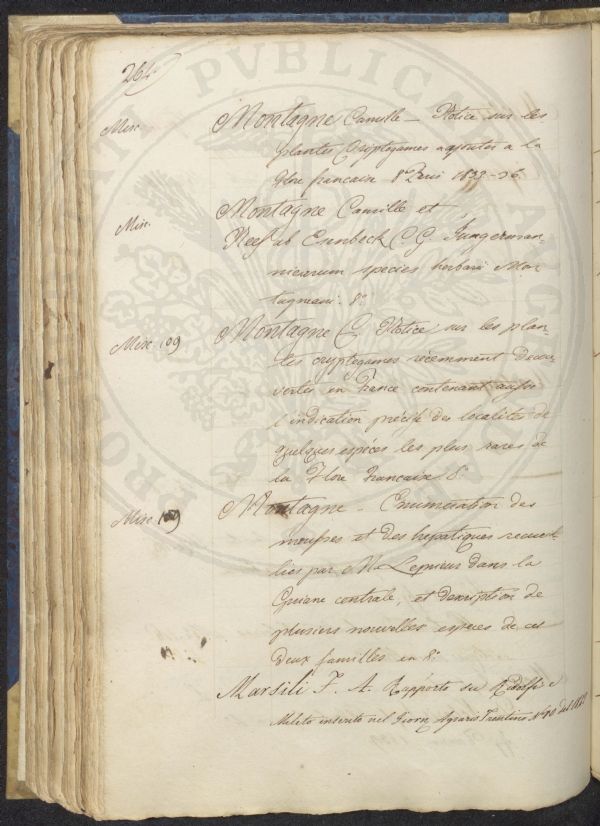 264
Misc. Montagne Camille — Notice sur les
plantes Cryptogames a ajouter a la
Flore francaise 8° Paris 1833-36
Misc. Montagne Camille et
Nees ab Esenbeck C. G. Jungerman-
niearum species herbarii Mon-
tagneani. 8°
Misc. 109 Montagne C. Notice sur les plan
tes cryptogames récemment décou
vertes en France contenant aussi
l'indication précise des localités de
quelques espèces les plus rares de
la Flore Française 8°
Misc. 109 Montagne - Enumération des
mousses et des hepatiques recueil-
lies par M. Leprieur dans la
Guiane centrale, et description de
plusieurs nouvelles especes de ces
deux familles in 8°
Marsili F. A. Rapporto su Ridolfi e
Mileto inserito nel Giorn. Agrario Trentino